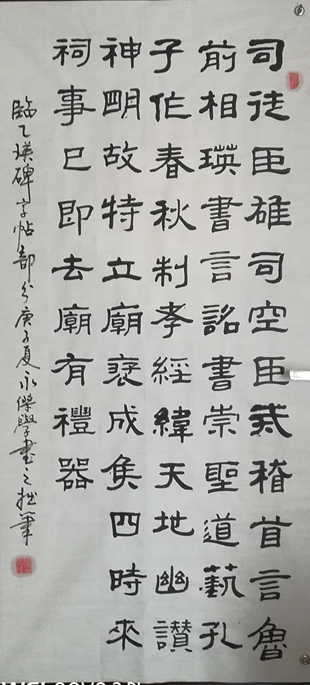 司徒臣雄司空臣戒稽首言魯
前相瑛書言詔書崇聖道藝孔
子作春秋制孝經緯天地幽讚
神明故特立廟褒成侯四時來
祠事已即去廟有禮器
臨乙瑛碑字帖部分庚子夏永傑學書之拙筆